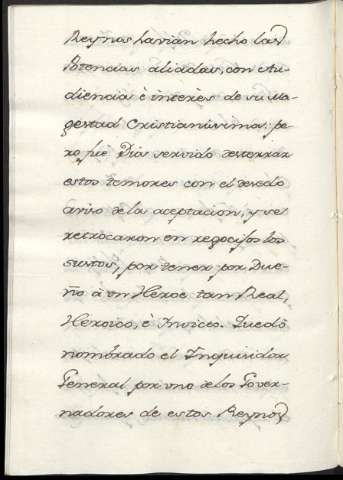 Reynos havian hecho las
Potencias aliadas, con Au-
diencia è interès de su Ma-
gestad Cristianissima: pe-
ro fuè Dios servido desterrar
estos temores con el
aviso de la aceptacion, y se
retrocaron en regocijos los
sustos, por tener por Due-
ño à un Heroe tan Real,
Heroico, è Invicto. Quedò
nombrado el Inquisidor
General por uno de los Gover-
nadores de estos Reynos